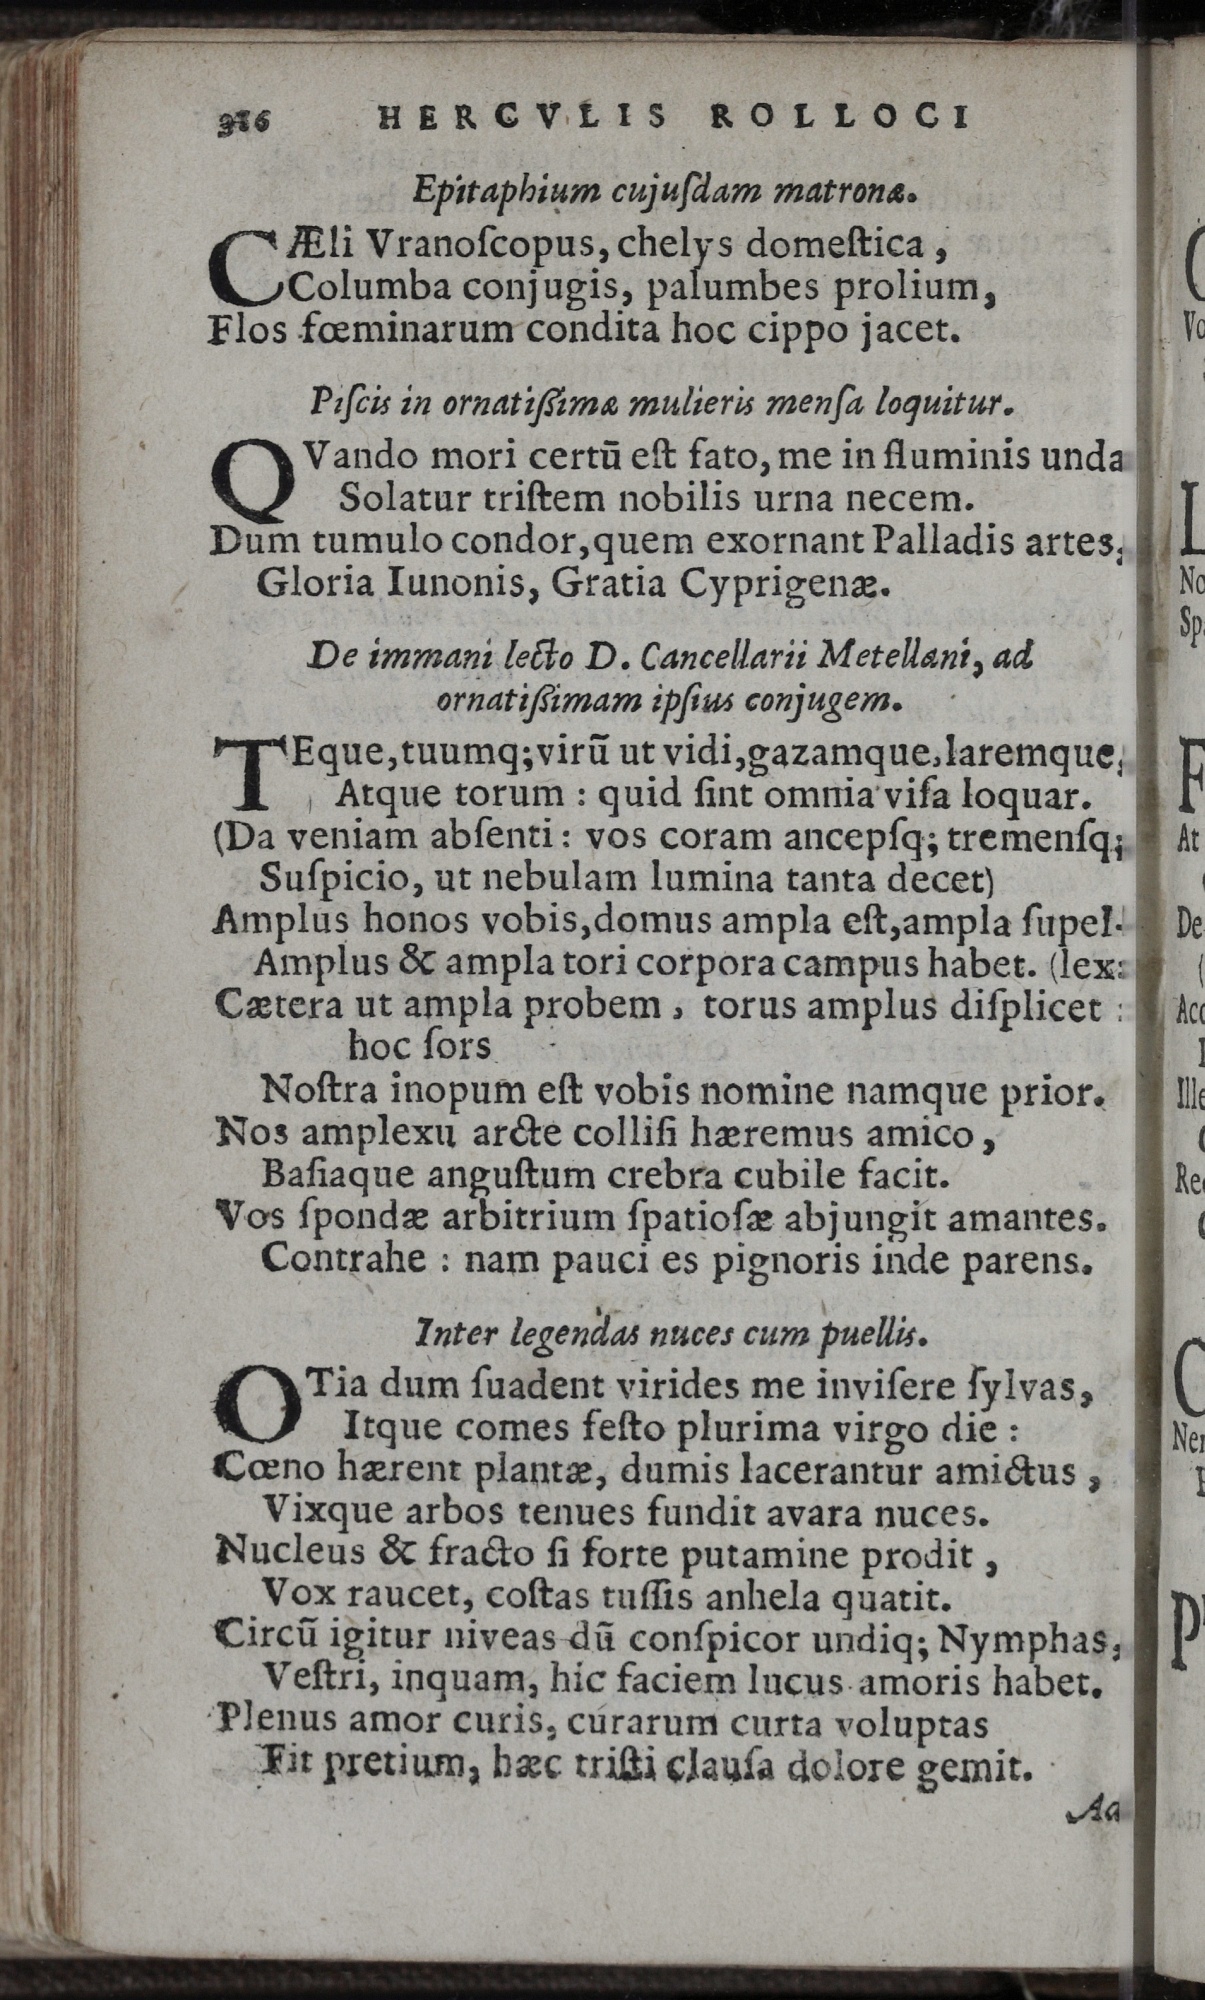 316 HERCVLIS ROLLOCI
Epitaphium cujuſdam matronæ.
CÆli Vranoſcopus, chelys domeſtica,
Columba conjugis, palumbes prolium,
Flos fœminarum condita hoc cippo jacet.
Piſcis in ornatiſſimæ mulieris menſa loquitur.
QVando mori certū eſt fato, me in fluminis unda
Solatur triſtem nobilis urna necem.
Dum tumulo condor, quem exornant Palladis artes,
Gloria Iunonis, Gratia Cyprigenæ.
De immani lecto D. Cancellarii Metellani, ad
ornatiſſimam ipſius conjugem.
TEque, tuumq; virū ut vidi, gazamque, laremque,
Atque torum : quid ſint omnia viſa loquar.
(Da veniam abſenti : vos coram ancepſq; tremenſq;
Suſpicio, ut nebulam lumina tanta decet)
Amplus honos vobis, domus ampla eſt, ampla ſupel-
Amplus & ampla tori corpora campus habet. (lex:
Cætera ut ampla probem, torus amplus diſplicet :
hoc ſors
Noſtra inopum eſt vobis nomine namque prior.
Nos amplexu arcte colliſi hæremus amico,
Baſiaque anguſtum crebra cubile facit.
Vos ſpondæ arbitrium ſpatioſæ abjungit amantes.
Contrahe : nam pauci es pignoris inde parens.
Inter legendas nuces cum puellis.
OTia dum ſuadent virides me inviſere ſylvas,
Itque comes feſto plurima virgo die :
Cœno hærent plantæ, dumis lacerantur amictus,
Vixque arbos tenues fundit avara nuces.
Nucleus & fracto ſi forte putamine prodit,
Vox raucet, coſtas tuſſis anhela quatit.
Circū igitur niveas dū conſpicor undiq; Nymphas,
Veſtri, inquam, hic faciem lucus amoris habet.
Plenus amor curis, curarum curta voluptas
Fit pretium, hæc triſti clauſa dolore gemit.
Aa